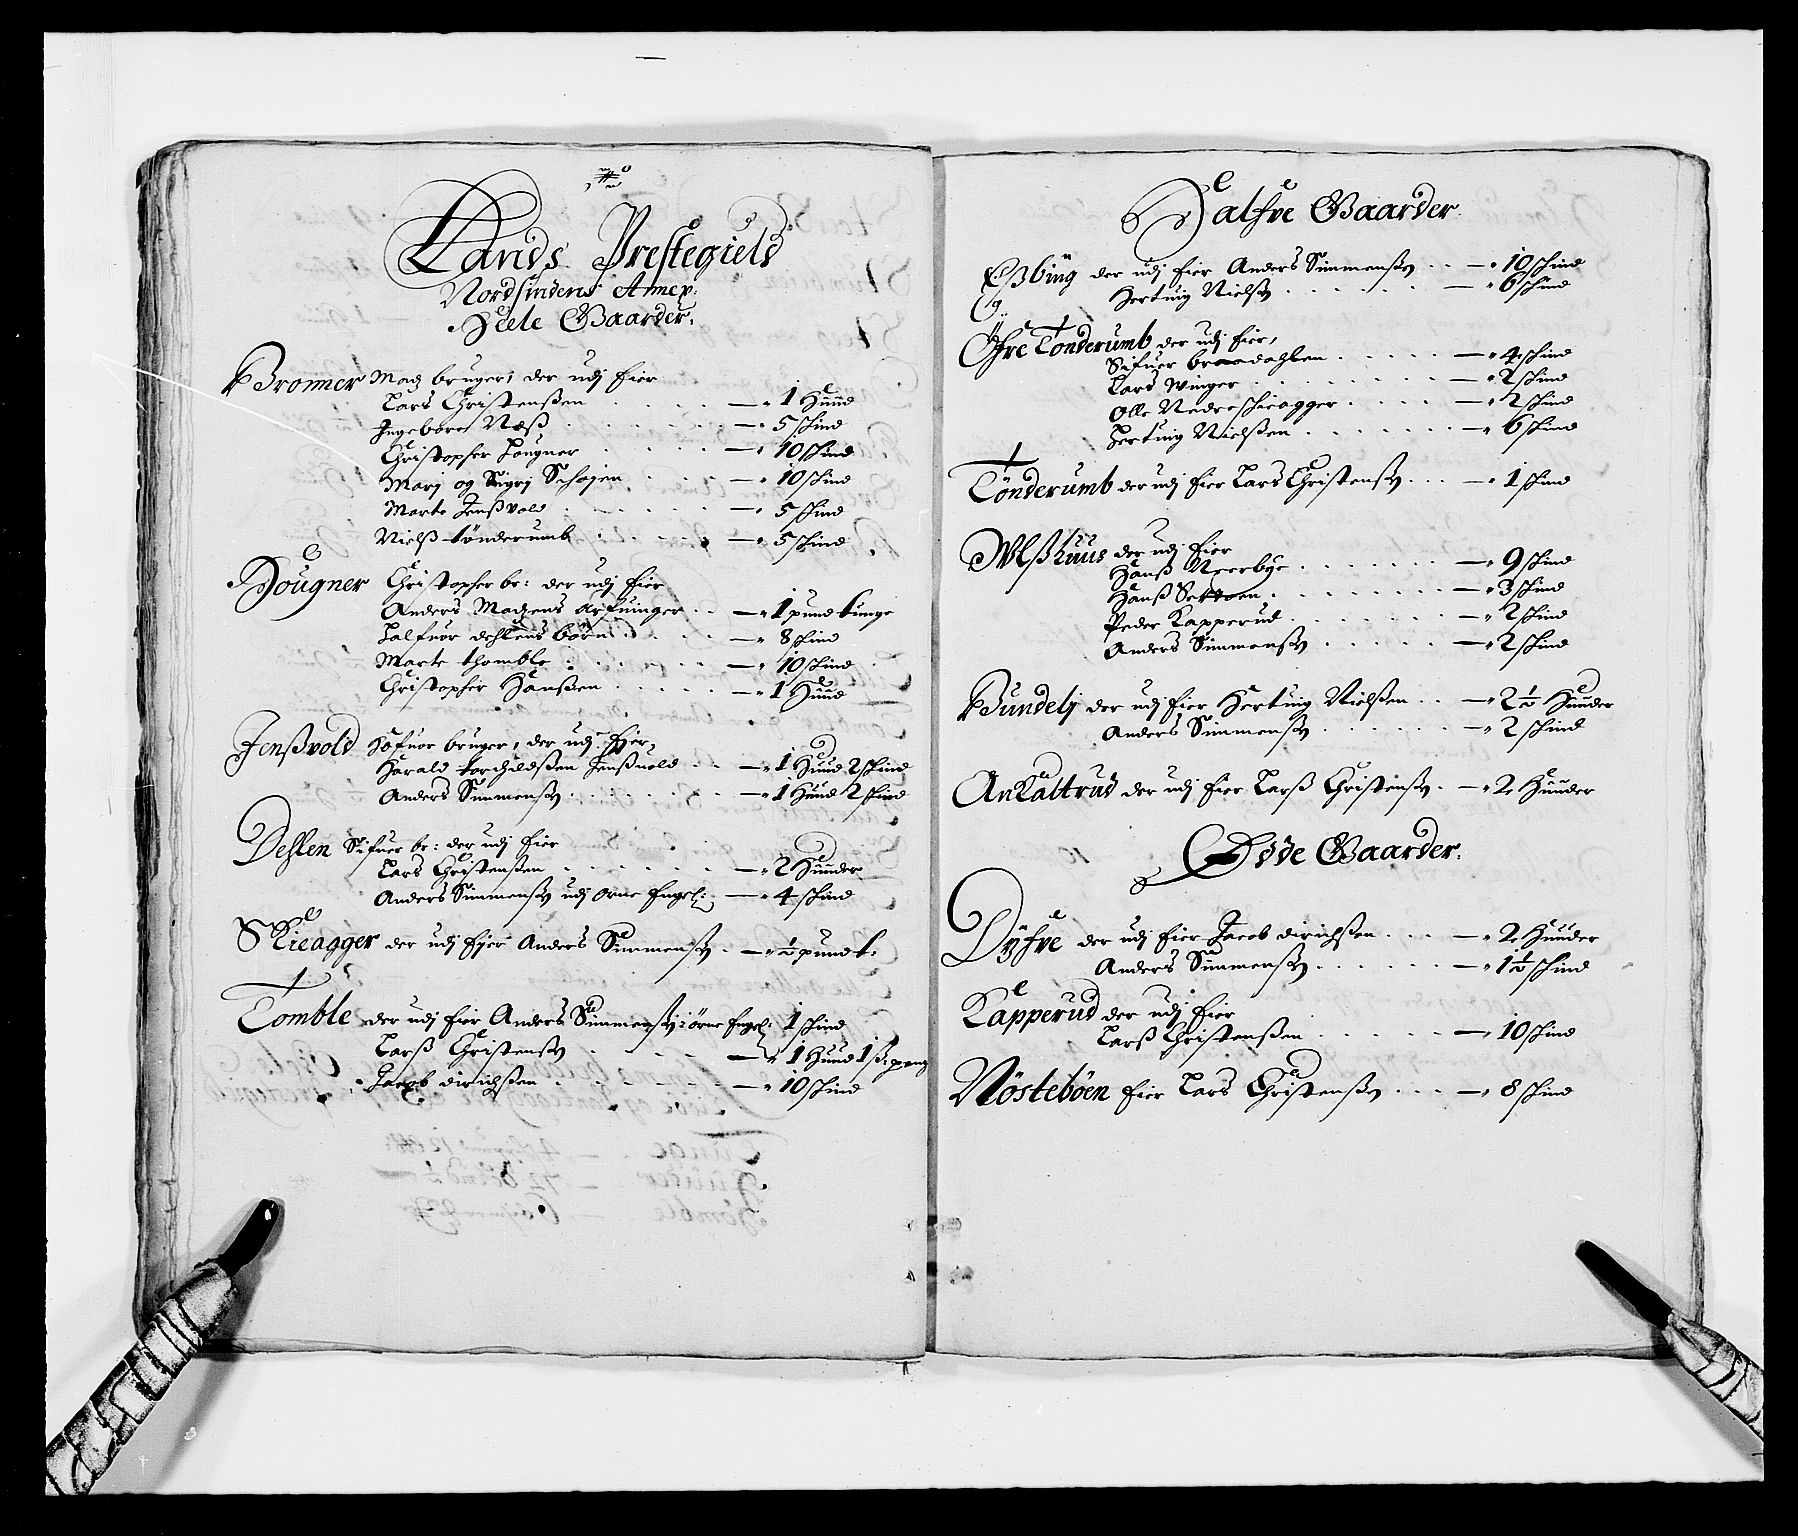 Lands Prestegield
Nordsindens Annex:
Heele Gaarder.
Bronner Madz bruger, der udj Eier
Lars Christenßen . . . . — 1 Huud
Ingebore Næß . . . . — 5 skind
Christopher Dougner . . . . — 10 skind
Marj og Sigrj Schøjen . . . — 10 skind
Marte Jenßvold . . . . — 5 skind
Nielß tönderumb . . . . — 5 skind
Dougner Christopher br: der udj Eier
Anders Madzens Arfuinger . . — 1 pund tunge
Halfuor dehlens börn . . . — 8 skind
Marte thomble . . . . — 10 skind
Christopher Hanßen . . . . — 1 Huud
Jenßvold Hafuor bruger, der udj Ejer
Harald torchildßen Jenßuold . . — 1 Huud 2 skind
Anders Simmenß . . . . — 1 Huud 2 skind
Dehlen Sifuer br: der udj Eier
Lars Christenßen . . . . — 2 Huuder
Anders Simmenß udj Orne Engel: — 4 skind
Skieagger der udj Ejer Anders Simmenß . — ½ pund t:
Tomble der udj Eier Anders Simmenß i örne Engel: 1 skind
Larß Christenß . . . . — 1 Huud 1 ß: peng
Jacob dirichßen . . . . — 10 skind
Halfve Gaarder
Eßbüng der udj Eier Anders Simmenß . . — 10 skind
Hertuig Nielß . . . . — 6 skind
Öfre Tonderumb der udj Eier,
Sifuer braadahlen . . . . — 4 skind
Lars Winger . . . . — 2 skind
Olle Nedreschieagger . . . . — 2 skind
Hertuig Nielßen . . . . — 6 skind
Tönderumb der udj Eier Lars Christenß . . . — 1 skind
Wlßhuus der udj Eier
Hanß Neerbye . . . . — 9 skind
Hanß . . . . — 3 skind
Peder Kapperud . . . . — 2 skind
Anders Simmenß . . . . — 2 skind
Bundelj der udj Eier Hertuig Nielßen . . — 2½ Huuder
Anders Simmenß . . . . — 2 skind
Ankaltrud der udj Eier Larß Christenß . — 2 Huuder
Øde Gaarder.
Dÿfve der udj Eier Jacob dirichßen . . . — 2 Huuder
Anders Simmenß . . . . — 1½ skind
Kapperud der udj Eier
Larß Christenßen . . . . — 10 skind
Nösteböen Eier Lars Christenß . . . — 8 skind